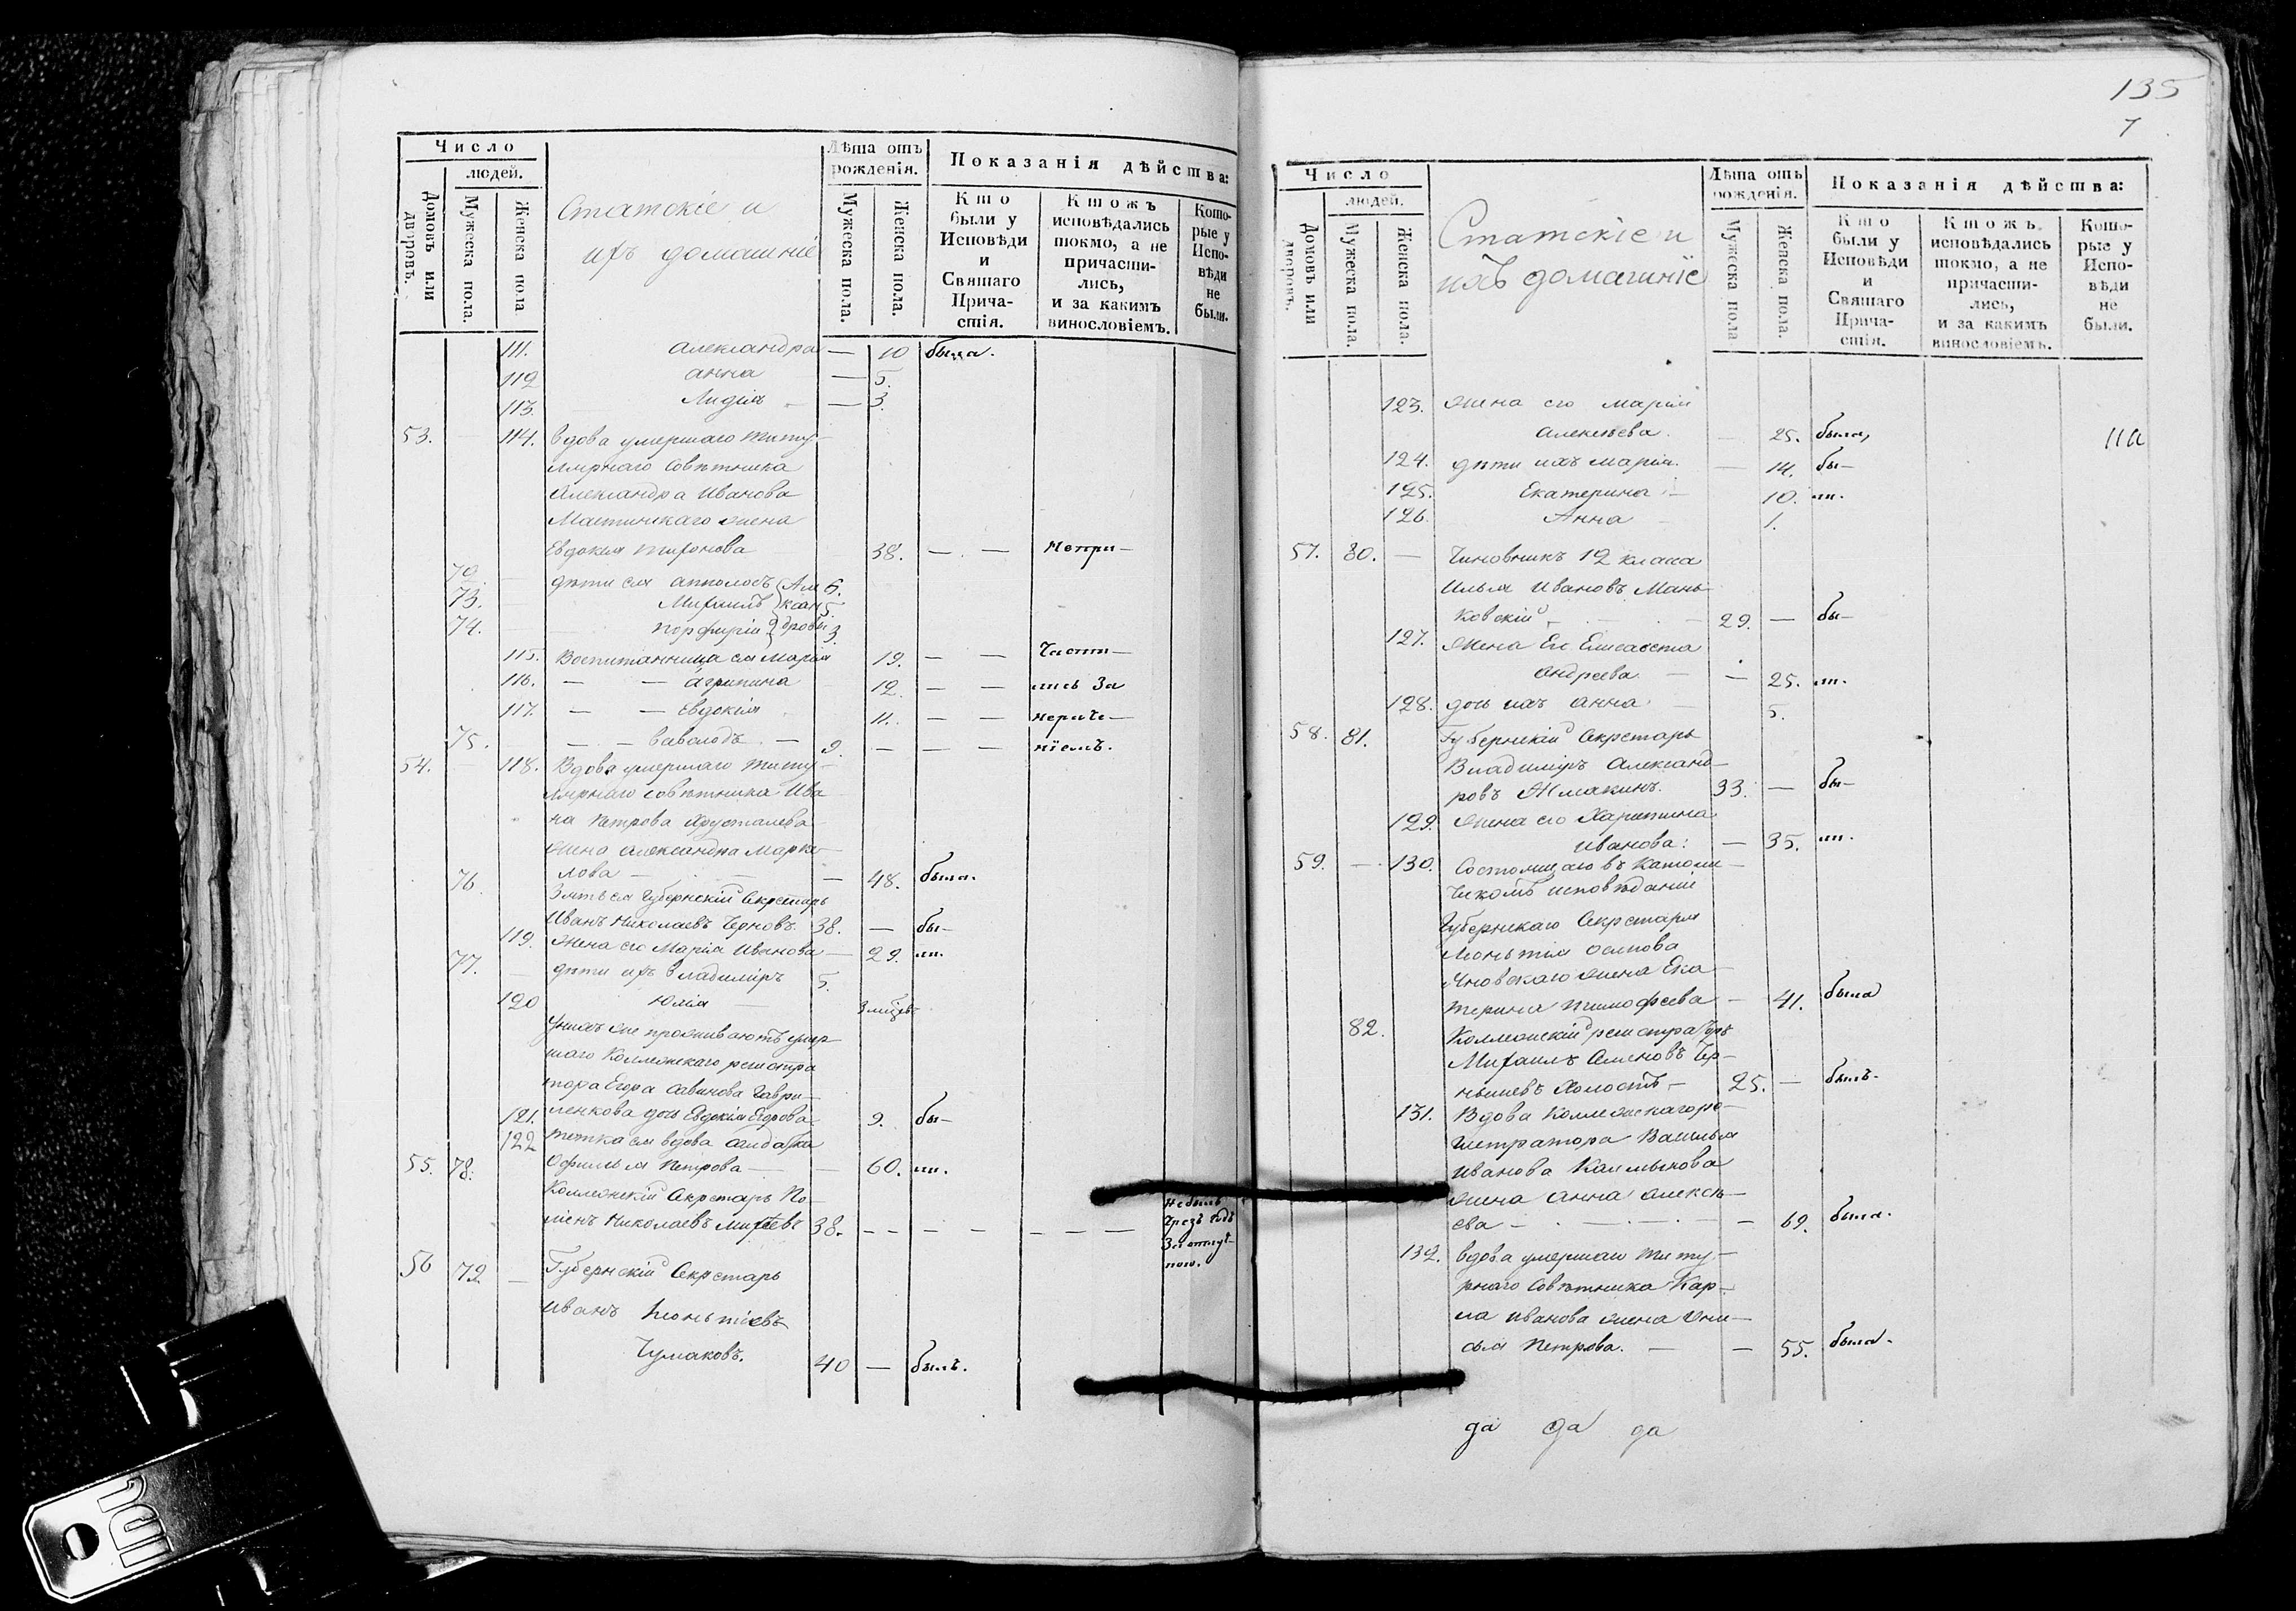 Число
людей.
Домовъ или дворовъ.
Мужеска пола.
Женска пола
Статскіе и
ихъ домашніе
Лѣта отъ
рожденія.
Мужеска пола.
Женска пола.
Показанія дѣйства:
Кто
были у
Исповѣди
и
Святаго
Прича-
стія.
Ктожъ
исповѣдались
токмо, а не
причасти-
лись,
и за какимъ
винословіемъ.
Кото-
рые у
Испо-
вѣди
не
были.
111. Александра — 10 была.
112 Анна — 5.
113. Лидія — 3.
53. — 114. Вдова умершаго титу-
лярнаго Совѣтника
Александра Иванова
жена
Евдокия 38. — — Непри-
72 дѣти ея 6.
73. Михаилъ 5.
74. Порфирій 3.
115. Воспитанница ея Марія 19. — — части-
116. — — Агрипина 12. — — лись За
117. — — Евдокія 11. — —
75. — — 9. — — — ніемъ.
54. — 118. Вдова умершаго титу-
лярнаго Совѣтника Ива
на Петрова Хрусталева
жена Александра
лова — — 48. была.
76. Зять ея Губернскій Секретарь
Иванъ Николаевъ Черновъ. 38. — бы-
119. Жена его Марія Иванова — 29. ли.
77. — дѣти ихъ Владиміръ 5.
120 Юлія — 3
У нихъ же проживаютъ умер
шаго Коллежскаго регистра
тора Егора Савинова Гаври-
121. ленкова дочь Евдокія Егорова 9. бы-
122 тетка ея вдова Солдатка
Офимья Петрова — — 60. ли.
55. 78. Коллежскій Секретарь
Николаевъ 38. — — — — — — — Небылъ
Чрезъ
56 79. — Губернскій Секретарь
Иванъ
Чумаковъ. 40 — былъ.
135
7
Число
людей.
Домовъ или дворовъ.
Мужеска пола.
Женска пола.
Статскіе и
ихъ домашніе
Лѣта отъ
рожденія.
Мужеска пола
Женска пола.
Показанія дѣйства:
Кто
были у
Исповѣди
и
Святаго
Прича-
стія.
Ктожъ
исповѣдались
токмо, а не
причасти-
лись,
и за какимъ
винословіемъ.
Кото-
рые у
Испо-
вѣди
не
были.
123. Жена его Марія
Алексѣева. — 25. была,
124. дѣти ихъ Марія. — 14. бы-
125. Екатерина — 10. ли.
126. Анна — 1.
57. 80. — Чиновникъ 12 класа
Илья Ивановъ Мань
ковскій — 29. — бы-
127. Жена Ег Елисавета
Андреева — — 25. ли.
128. дочь ихъ Анна 5.
58. 81. Губернскій Секретарь
Владиміръ Александ-
ровъ Жмакинъ. 33. — бы-
129. Жена его Харитина
Иванова: — 35. ли.
59. — 130. Состоящаго въ Католи-
ческомъ исповѣданіи
Губернскаго Секретаря
Осипова
Яновскаго жена Ека-
терина Тимофеева — 41. была
82. Коллежскій регистраторъ
Михаилъ Семеновъ Чер-
нышевъ Холостъ — 25. — былъ.
131. Вдова Коллежскаго ре-
гистратора Василья
Иванова Калмыкова
жена Анна Алексѣ-
ева — — 69. была.
132. Вдова умершаго титу-
рнаго Совѣтника Кар-
ла Иванова жена
Петрова. — — 55. была.
да да да